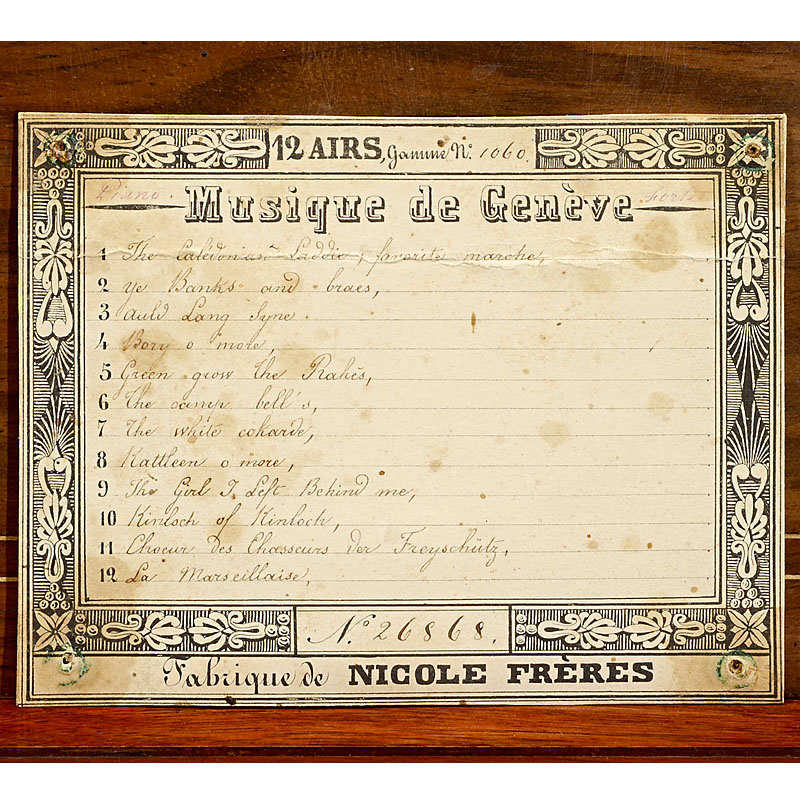 12 AIRS, Gamme No. 1060.
Piano. Forte
Musique de Genève
1 The Calédonian Laddie, favorite marche,
2 ye Banks and braes,
3 Auld Lang Syne.
4 Rory o more,
5 Green grow the Rahés,
6 The camp bell's,
7 The white cokarde,
8 Kattleen o more,
9 The Girl I Left Behind me,
10 Kinloch of Kinloch,
11 Choeur des Chasseurs der Freyschütz,
12 La Marseillaise,
No. 26868.
Fabrique de NICOLE FRÈRES